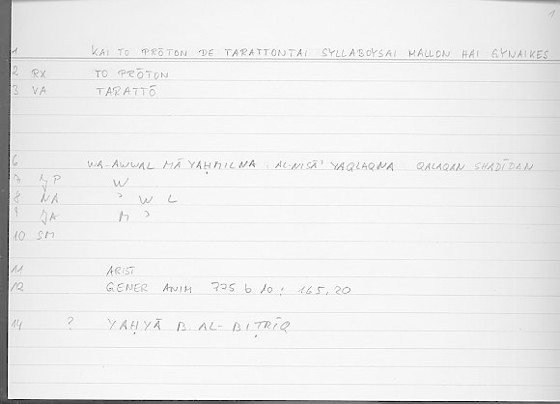 1 KAI TO PRŌTON DE TARATTONTAI SYLLABOYSAI MALLON HAI GYNAIKES
2 RX TO PRŌTON
3 VA TARATTŌ
6 WA-AWWAL MĀ YAḤMILNA AL-NISĀʾ YAQLAQNA QALAQAN SHADĪDAN
7 P W
8 NA ʾ W L
9 M ʾ
10 SM
11 ARIST
12 GENER ANIM 775 b 10 ; 165,20
14 ? YAḤYĀ B. AL-BIṬRĪQ